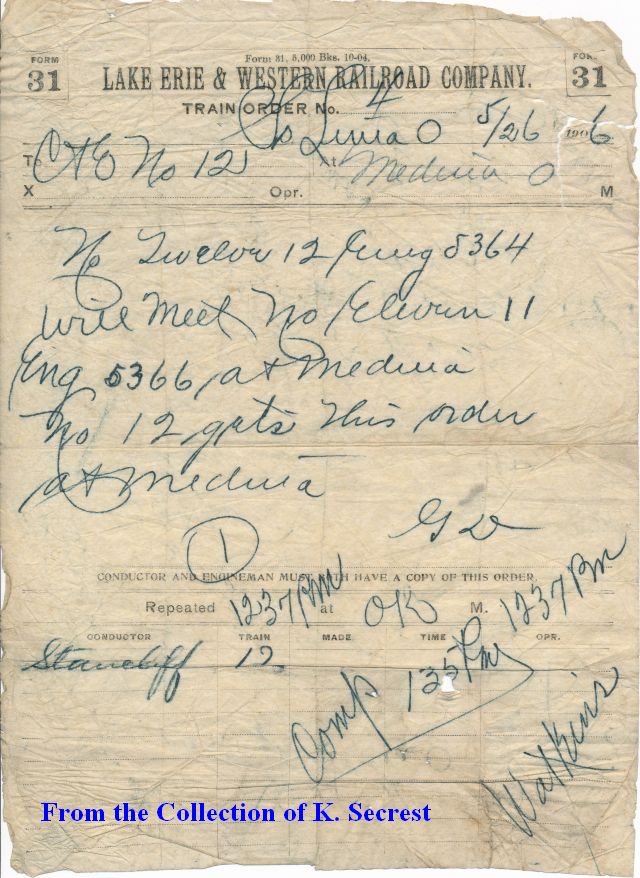 FORM
31
Form 31, 5,000 Bks. 10-04.
LAKE ERIE & WESTERN RAILROAD COMPANY.
FOR
31
TRAIN ORDER No. 4
Lima O 5/26 1906
To C&E No 12 At Medina O
X Opr. M
No Twelve 12 Eng 5364
will Meet No Eleven 11
Eng 5366 at Medina
No 12 gets this order
at Medina
1
CONDUCTOR AND ENGINEMAN MUST BOTH HAVE A COPY OF THIS ORDER.
Repeated 1237 PM at OK M. 1237 PM
CONDUCTOR TRAIN MADE TIME OPR.
Stancliff 12 Comp 135 PM Watkins
From the Collection of K. Secrest